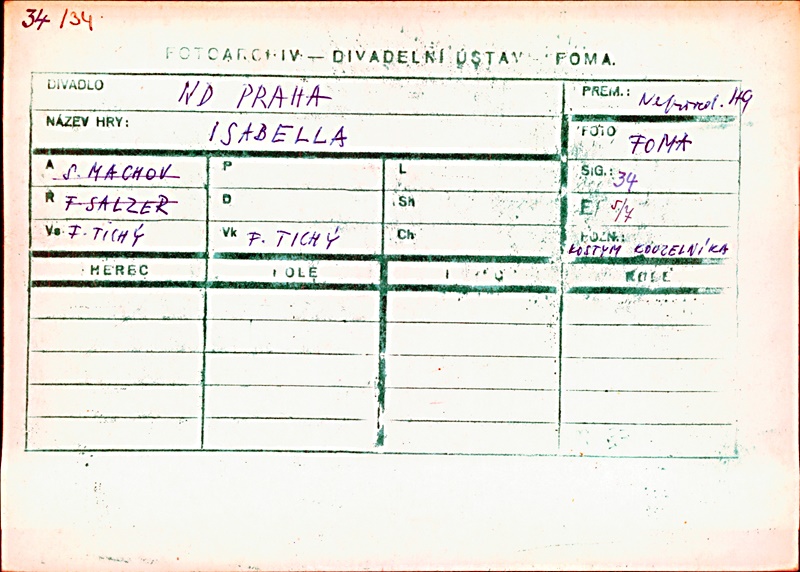 34/34
FOTOARCHIV — DIVADELNÍ ÚSTAV FOMA.
DIVADLO ND PRAHA PREM.:
NÁZEV HRY: ISABELLA FOTO FOMA
A S. MACHOV P L SIG.: 34
R F. SALZER D Sh 5/7
Vs F. TICHÝ Vk F. TICHÝ Ch POZN.:
KOSTYM KOUZELNÍKA
HEREC ROLE ROLE